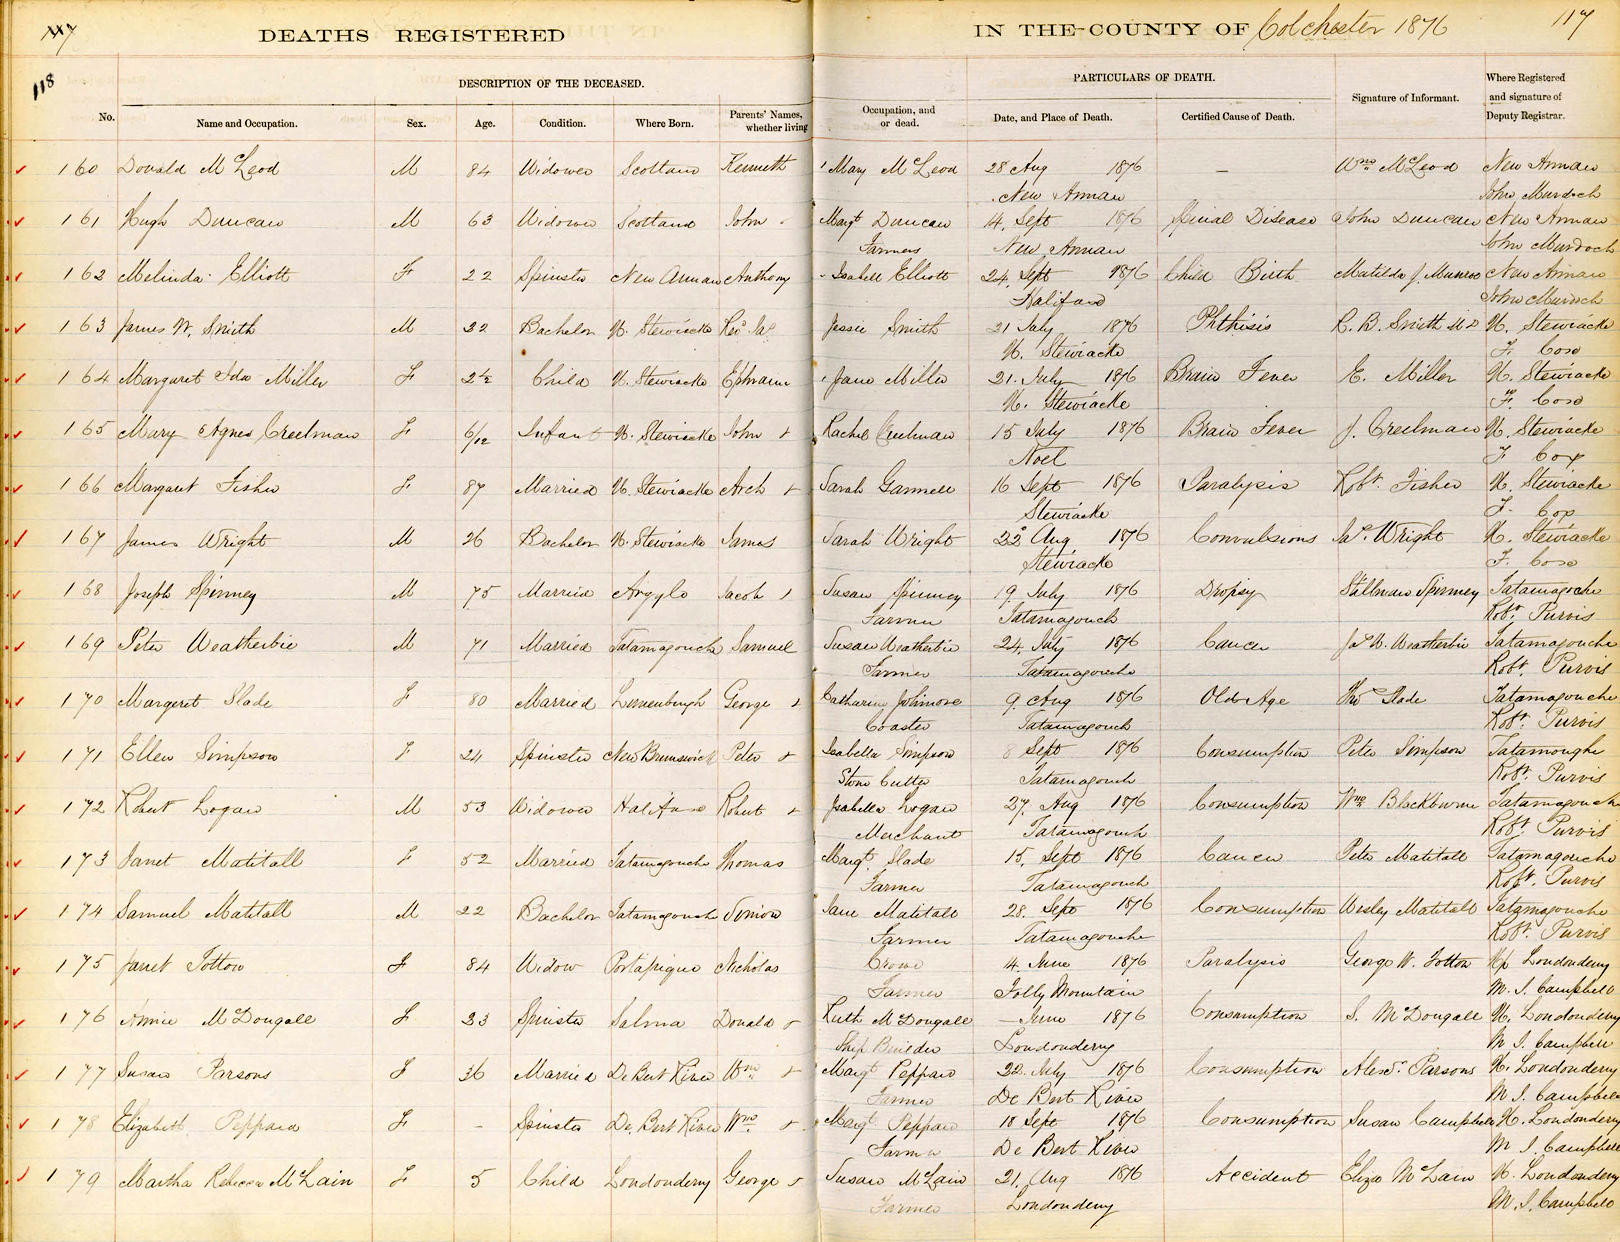 117 DEATHS REGISTERED IN THE COUNTY OF Colchester 1876 117
118
DESCRIPTION OF THE DECEASED. PARTICULARS OF DEATH.
No. Name and Occupation. Sex. Age. Condition. Where Born. Parents' Names, whether living Occupation, and or dead. Date, and Place of Death. Certified Cause of Death. Signature of Informant. Where Registered and signature of Deputy Registrar.
160 Donald McLeod M 84 Widower Scotland Kenneth Mary McLeod 28 Aug 1876 – Wm McLeod New Annan
New Annan John Murdoch
161 Hugh Duncan M 63 Widower Scotland John Margt Duncan 14, Sept 1876 Spinal Disease John Duncan New Annan
Farmers New Annan John Murdoch
162 Melinda Elliott F 22 Spinster New Annan Anthony Isabell Elliott 24, Sept 1876 Child Birth Matilda J. Munroe New Annan
Halifax John Murdoch
163 James W. Smith M 22 Bachelor U. Stewiacke Jessie Smith 21 July 1876 Phthisis C. B. Smith MD U. Stewiacke
U. Stewiacke F. Cox
164 Margaret Ida Miller F 2½ Child U. Stewiacke Ephraim Jane Miller 21. July 1876 Brain Fever E. Miller U. Stewiacke
U. Stewiacke F. Cox
165 Mary Agnes Creelman F 6/12 Infant U. Stewiacke John + Rachel Creelman 15 July 1876 Brain Fever J. Creelman U. Stewiacke
Noel F Cox
166 Margaret Fisher F 87 Married U. Stewiacke Arch + Sarah Gammell 16 Sept 1876 Paralysis Robt. Fisher U. Stewiacke
Stewiacke F. Cox
167 James Wright M 26 Bachelor U. Stewiacke James Sarah Wright 22 Aug 1876 Convulsions Jas. Wright U. Stewiacke
Stewiacke F. Cox
168 Joseph Spinney M 75 Married Argyle Jacob Susan Spinney 19 July 1876 Dropsy Stillman Spinney Tatamagoche
Farmer Tatamagouch Robt Purvis
169 Peter Weatherbie M 71 Married Tatamagouch Samuel Susan Weatherbie 24, July 1876 Cancer Weatherbie Tatamagouche
Farmer Tatamagouche Robt. Purvis
170 Margeret Slade F 80 Married Lunenburgh George + Catharine Johnson 9 Aug 1876 Old Age Thos Slade Tatamagouche
Coaster Tatamagouch Robt. Purvis
171 Ellen Simpson F 24 Spinster New Brunswick Peter + Isabella Simpson 8 Sept 1876 Consumption Peter Simpson Tatamoughe
Stone Cutter Tatamagouch Robt. Purvis
172 Robert Logan M 53 Widower Halifax Robert + Isabella Logan 27, Aug 1876 Consumption Wm Blackburne Tatamagouch
Merchant Tatamagouch Robt. Purvis
173 Janet Matitall F 52 Married Tatamagouche Thomas Margt Slade 15, Sept 1876 Cancer Peter Matitall Tatamagouche
Farmer Tatamagouch Robt. Purvis
174 Samuel Matitall M 22 Bachelor Tatamagouch Simion Jane Matitall 28. Sept 1876 Consumption Wesley Matitall Tatamagouche
Farmer Tatamagouche Robt. Purvis
175 Janet Totton F 84 Widow Portapique Nicholas Crowe 4. June 1876 Paralysis George W. Totton Londonderry
Farmer Folly Mountain M. S. Campbell
176 Annie McDougall F 23 Spinster Selma Donald + Ruth McDougall – June 1876 Consumption S. McDougall U. Londonderry
Ship Builder Londonderry M S. Campbell
177 Susan Parsons F 36 Married De Bert River Wm + Margt Peppard 22. July 1876 Consumption Alexr. Parsons U. Londonderry
Farmer De Bert River M S. Campbell
178 Elizabeth Peppard F – Spinster De Bert River Wm + Margt Peppard 10 Sept 1876 Consumption Susan Campbell U. Londonderry
Farmer De Bert River M S. Campbell
179 Martha Rebecca McLain F 5 Child Londonderry George + Susan McLain 21, Aug 1876 Accident Eliza McLain U. Londonderry
Farmer Londonderry M. S. Campbell